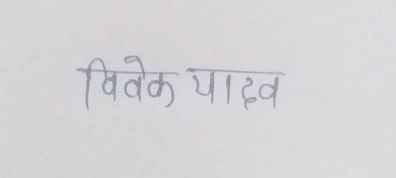 विवेक यादव